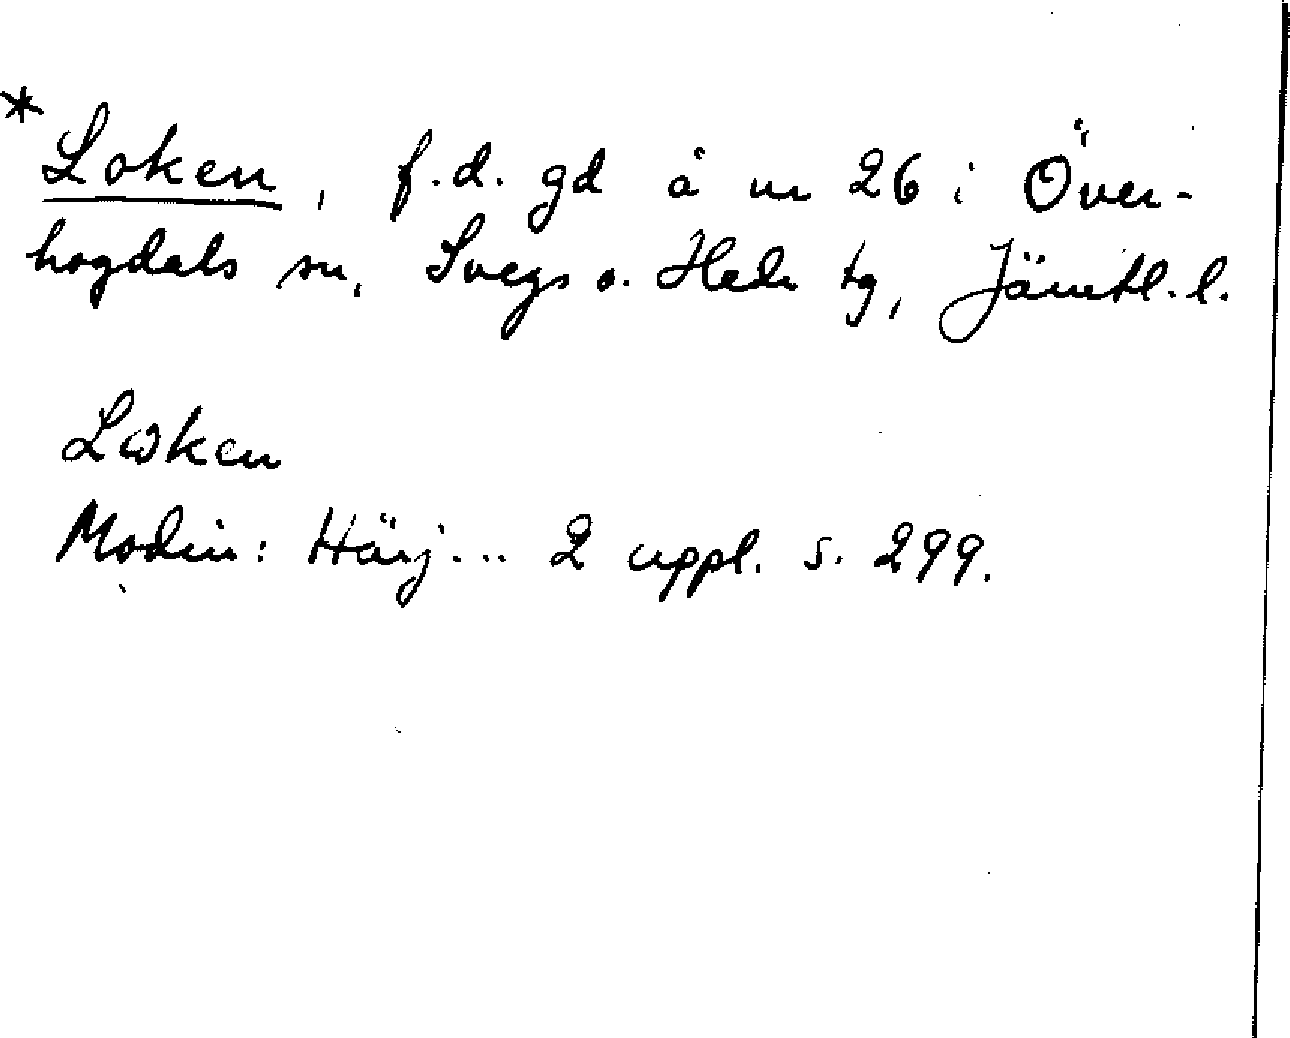 * Loken, f.d. gd å nr 26 i Över-
hogdals sn, Svegs o. Heds tg, Jämtl. l.
Lωken
Modin: Härj... 2 uppl. s. 299.